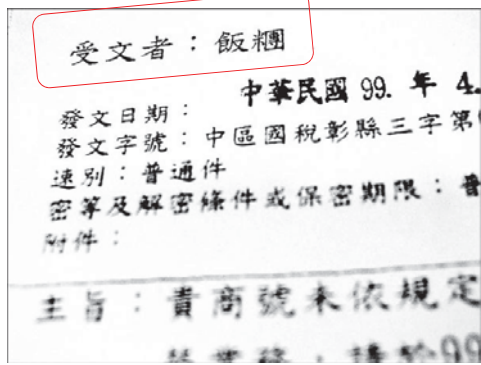 受文者：飯糰
中華民國 99. 年 4.
發文日期：
發文字號：中區國稅彰縣三字第
速別：普通件
密等及解密條件或保密期限：普
附件：
主旨：貴商號未依規定